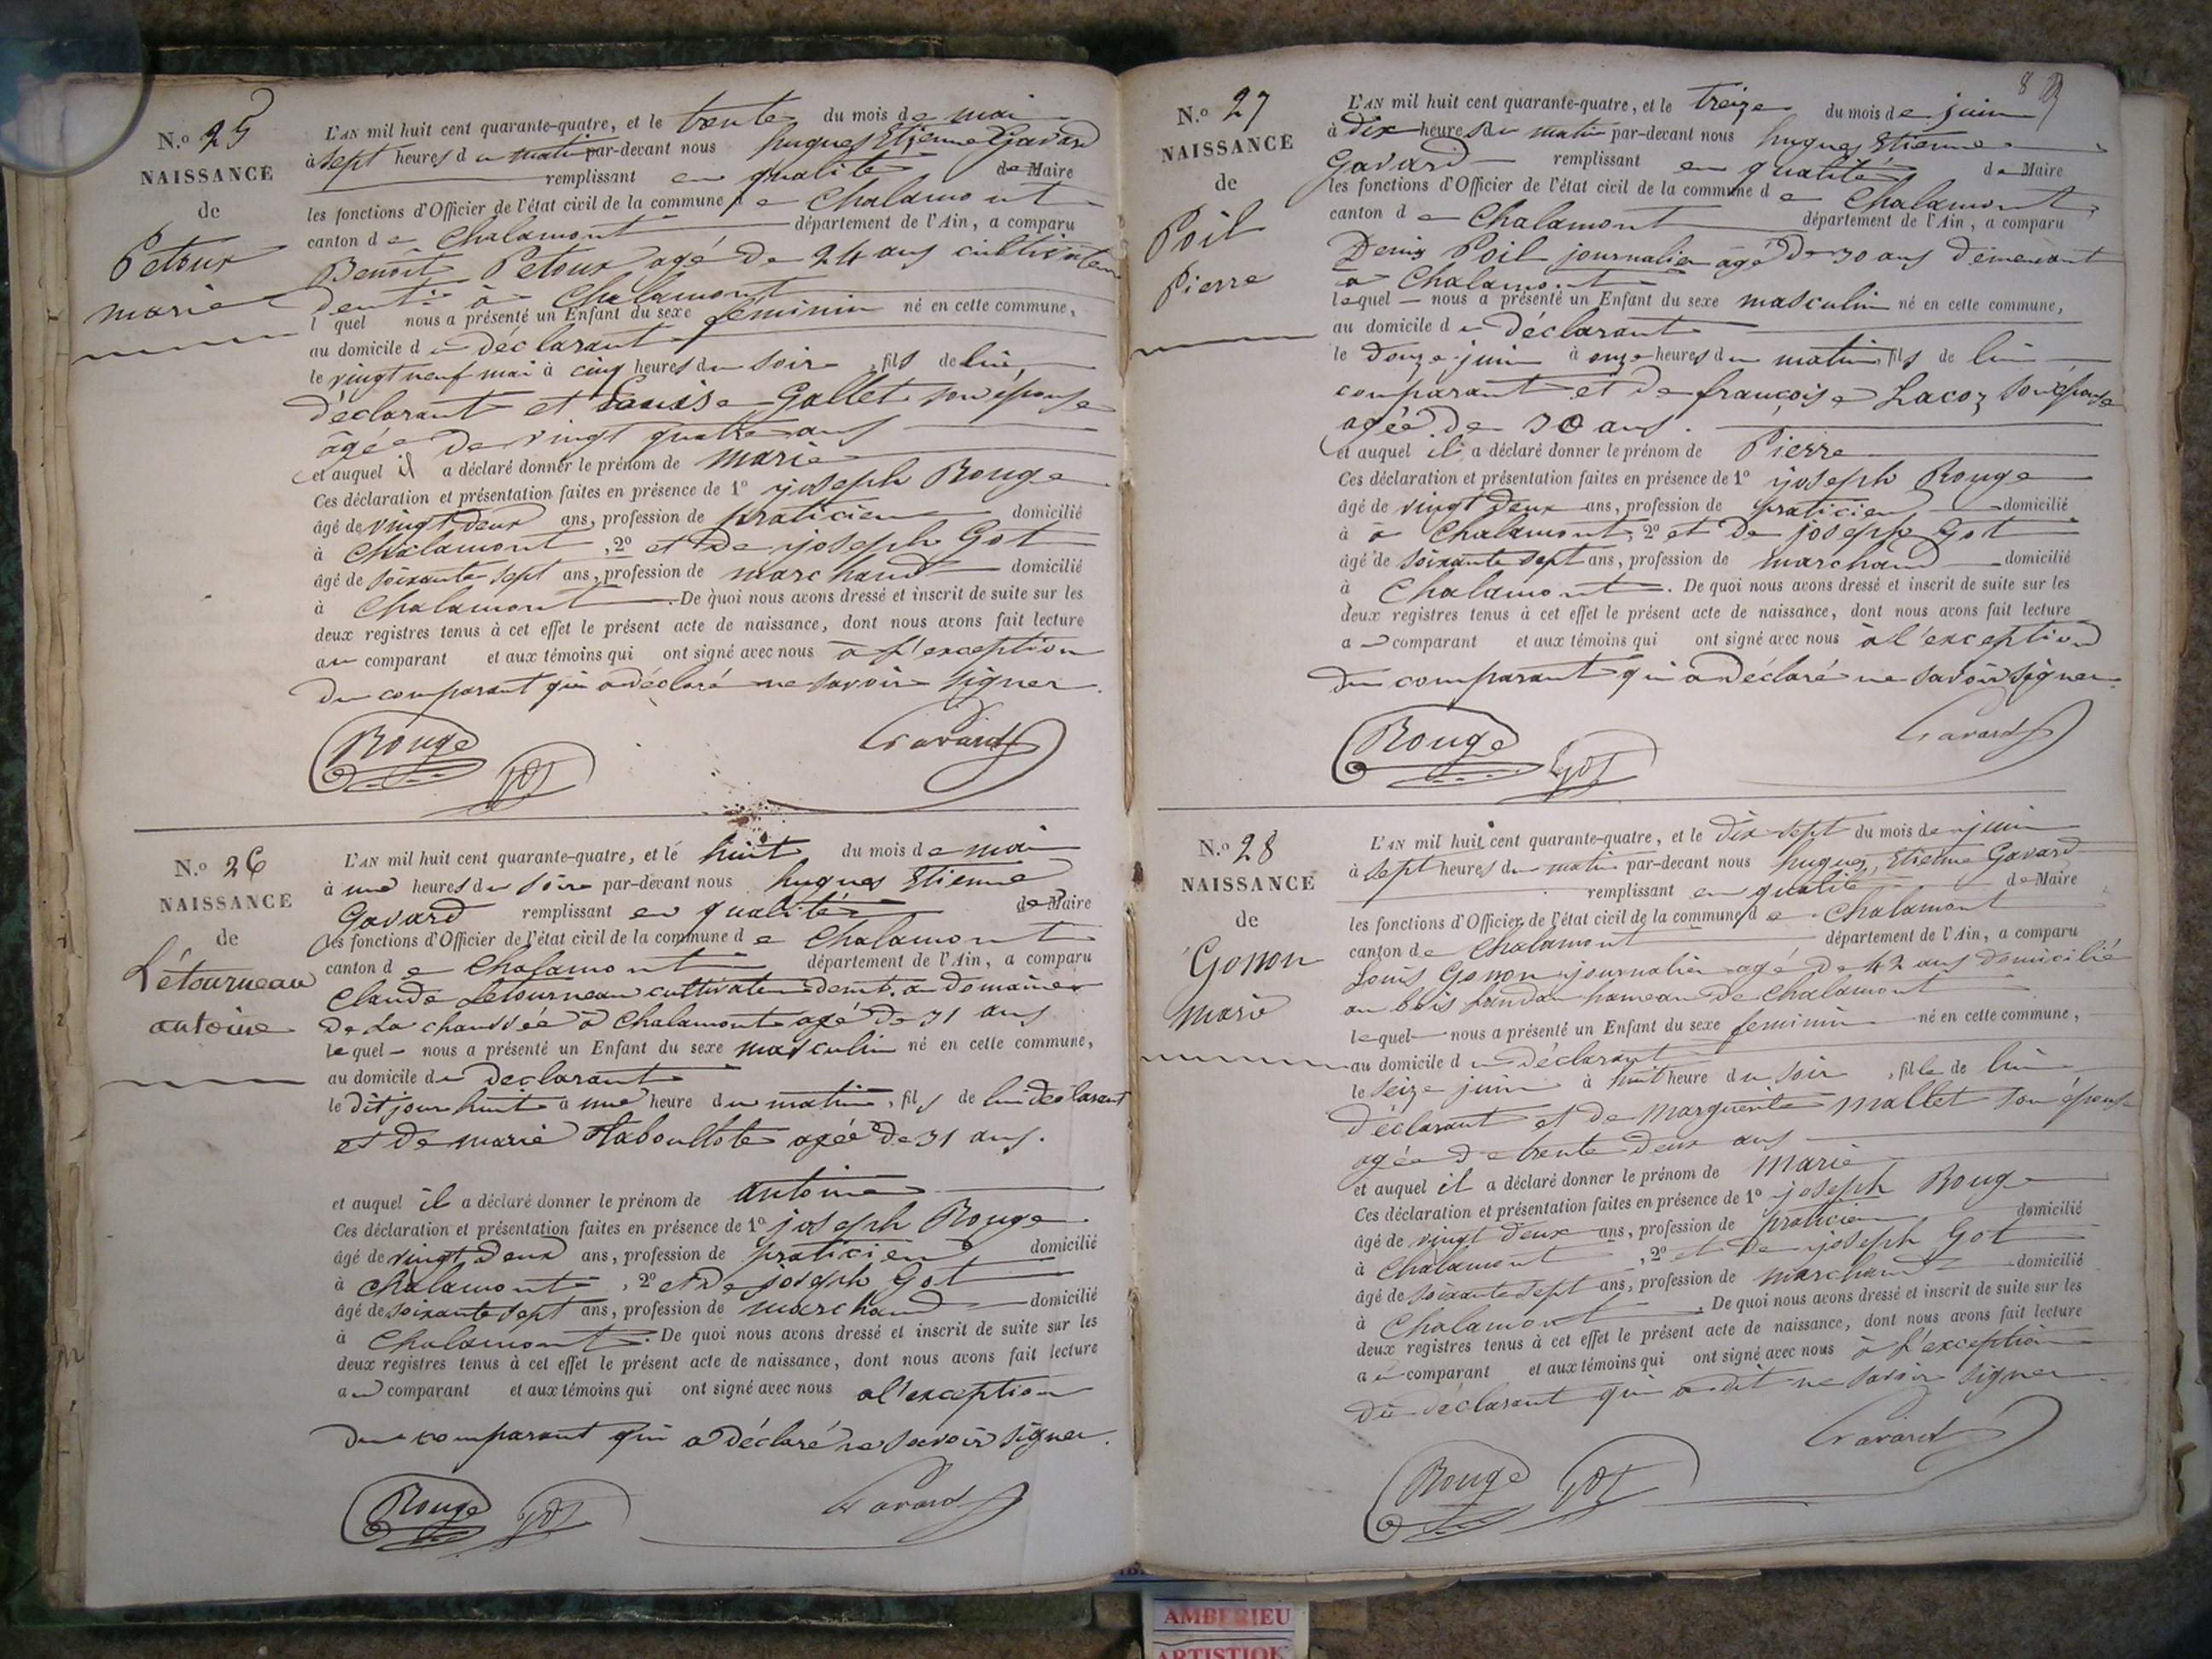 N.o 25
NAISSANCE
de
Petoux
marie
L'AN mil huit cent quarante-quatre, et le trente du mois de mai
à sept heures du matin par-devant nous hugues Etienne Gavard
remplissant en qualité de Maire
les fonctions d'Officier de l'état civil de la commune de Chalamont
canton de Chalamont département de l'Ain, a comparu
Benoît Petoux agé de 24 ans cultivateur
demt à Chalamont
l quel nous a présenté un Enfant du sexe féminin né en cette commune,
au domicile du déclarant
le vingt neuf mai à cinq heures du soir, fils de lui,
déclarant et Louise Gallet son épouse
âgée de vingt quatre ans
et auquel il a déclaré donner le prénom de marie
Ces déclaration et présentation faites en présence de 1º joseph Rouge
âgé de vingt deux ans, profession de praticien domicilié
à Chalamont, 2º et de joseph Got
âgé de soixante sept ans, profession de marchand domicilié
à Chalamont. De quoi nous avons dressé et inscrit de suite sur les
deux registres tenus à cet effet le présent acte de naissance, dont nous avons fait lecture
au comparant et aux témoins qui ont signé avec nous à l'exception
du comparant qui a déclaré ne savoir signer.
Rouge Got Gavard
N.o 26
NAISSANCE
de
Létourneau
antoine
L'AN mil huit cent quarante-quatre, et le huit du mois de mai
à une heures du soir par-devant nous hugues Etienne
Gavard remplissant en qualité de Maire
les fonctions d'Officier de l'état civil de la commune de Chalamont
canton de Chalamont département de l'Ain, a comparu
Claude Letourneau cultivateur demt. au domaine
de la chaussée à Chalamont agé de 31 ans
lequel nous a présenté un Enfant du sexe masculin né en cette commune,
au domicile du declarant
le dit jour huit à une heure du matin, fils de lui déclarant
et de marie Taboullote agée de 31 ans.
et auquel il a déclaré donner le prénom de antoine
Ces déclaration et présentation faites en présence de 1º joseph Rouge
âgé de vingt deux ans, profession de praticien domicilié
à Chalamont, 2º et de joseph Got
âgé de soixante sept ans, profession de marchand domicilié
à Chalamont. De quoi nous avons dressé et inscrit de suite sur les
deux registres tenus à cet effet le présent acte de naissance, dont nous avons fait lecture
au comparant et aux témoins qui ont signé avec nous a l'exception
du comparant qui a déclaré ne savoir signer.
Rouge Got Gavard
8
N.o 27
NAISSANCE
de
Poil
Pierre
L'AN mil huit cent quarante-quatre, et le treize du mois de juin
à dix heures du matin par-devant nous hugues Etienne
Gavard remplissant en qualité de Maire
les fonctions d'Officier de l'état civil de la commune de Chalamont
canton de Chalamont département de l'Ain, a comparu
Denis Poil journalier agé de 30 ans demeurant
à Chalamont
lequel nous a présenté un Enfant du sexe masculin né en cette commune,
au domicile du déclarant
le douze juin à onze heures du matin, fils de lui
comparant et de françoise Lacoz son épouse
agée de 30 ans.
et auquel il a déclaré donner le prénom de Pierre
Ces déclaration et présentation faites en présence de 1º joseph Rouge
âgé de vingt deux ans, profession de praticien domicilié
à à Chalamont, 2º et de joseph Got
âgé de soixante sept ans, profession de marchand domicilié
à Chalamont. De quoi nous avons dressé et inscrit de suite sur les
deux registres tenus à cet effet le présent acte de naissance, dont nous avons fait lecture
au comparant et aux témoins qui ont signé avec nous à l'exception
du comparant qui a déclaré ne savoir signer.
Rouge Got Gavard
N.o 28
NAISSANCE
de
Gonon
marie
L'AN mil huit cent quarante-quatre, et le dix sept du mois de juin
à sept heures du matin par-devant nous hugues, Etienne Gavard
remplissant en qualité de Maire
les fonctions d'Officier de l'état civil de la commune de Chalamont
canton de Chalamont département de l'Ain, a comparu
Louis Gonon journalier agé de 42 ans domicilié
au bois hameau de Chalamont
lequel nous a présenté un Enfant du sexe feminin né en cette commune,
au domicile du déclarant
le seize juin à huit heure du soir, fille de lui
déclarant et de marguerite mallet son épouse
agée de trente deux ans
et auquel il a déclaré donner le prénom de Marie
Ces déclaration et présentation faites en présence de 1º joseph Rouge
âgé de vingt deux ans, profession de praticien domicilié
à Chalamont, 2º et de joseph Got
âgé de soixante sept ans, profession de marchand domicilié
à Chalamont. De quoi nous avons dressé et inscrit de suite sur les
deux registres tenus à cet effet le présent acte de naissance, dont nous avons fait lecture
au comparant et aux témoins qui ont signé avec nous à l'exception
du déclarant qui a dit ne savoir signer.
Rouge Got Gavard
AMBERIEU